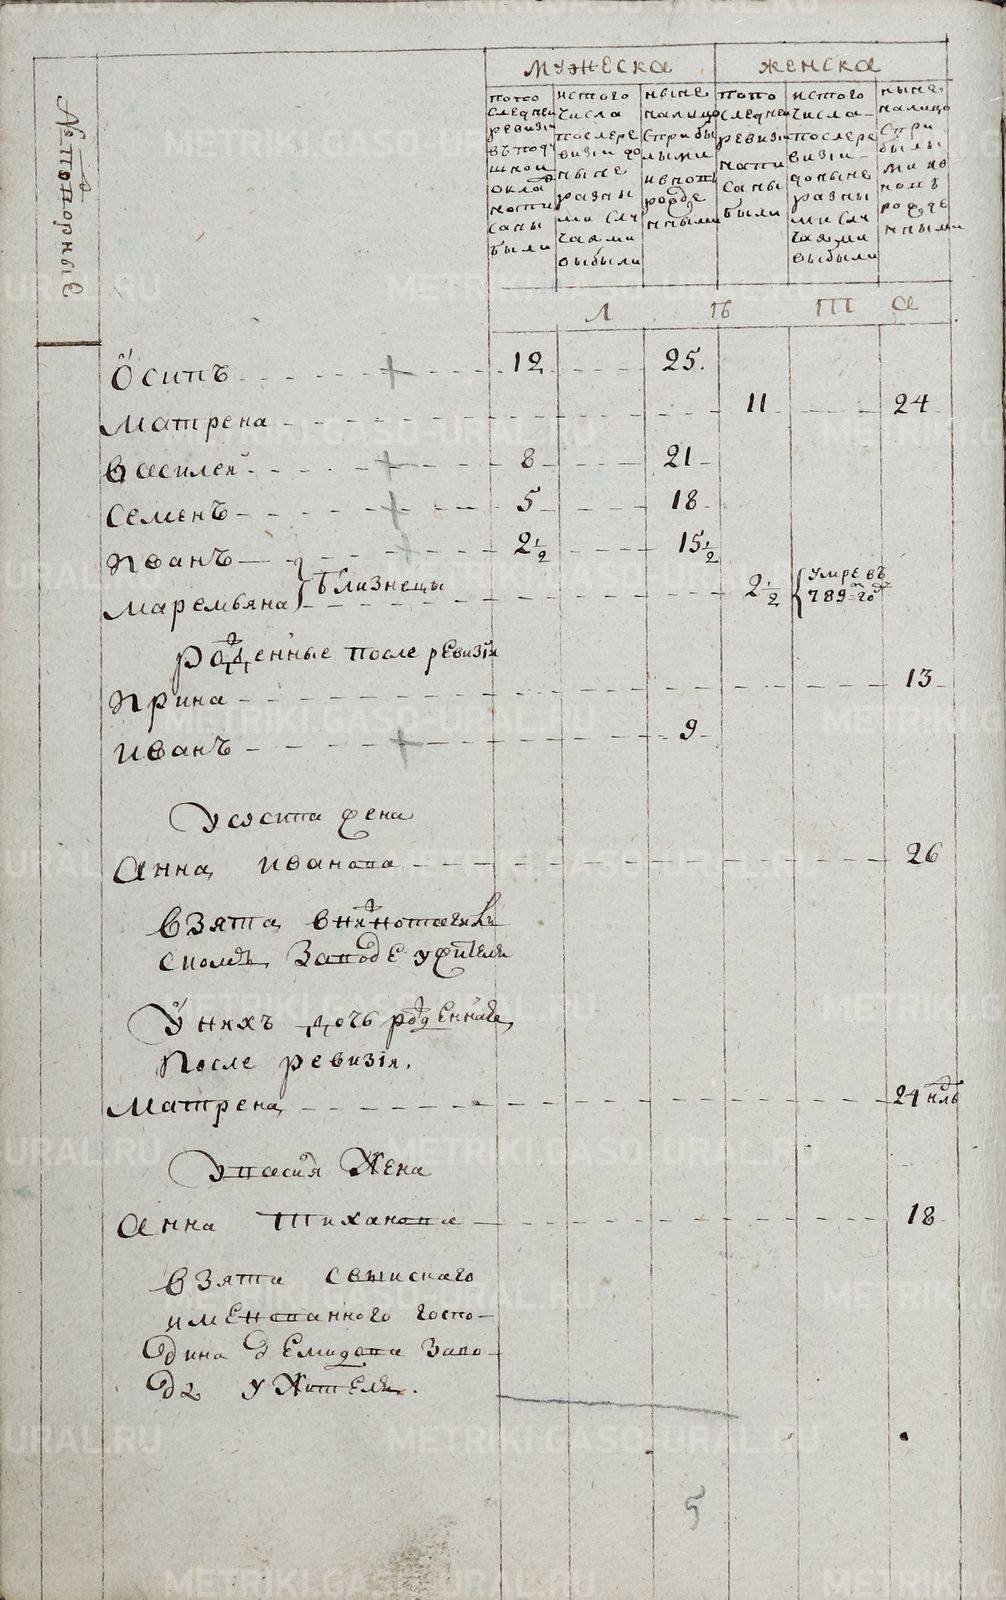 № попорные
мужеска
женска
попо
следней
ревизіи
въ поду
шной
окла
напи
саны
были
ис того
числа
после ре
визіи до
ныне
разны
ми слу
чаями
выбыли
ныне
на лицо
с прибы
лыми
и внои
рожде
нными
по по
следней
ревизіи
напи
саны
были
ис того
числа
после ре
визіи
до ныне
разны
ми слу
чаями
выбыли
ныне
на лицо
с при
былы
ми и но
номъ
рожде
нными
Л ѣ т а
Осипъ 12 25.
Матрена 11 24
Василей 8 21
Семенъ 5 18
Иванъ 2½ 15½
Маремьяна близнецы 2½ умре въ
789 м год
рожденные после ревизіи
Ирина 13
Иванъ 9
У осипа жена
Анна Иванова 26
Взята в
заводе у жителя
У них дочь рожденная
после ревизія.
Матрена 24 нлд
У васи я Жена
Анна Тиханова 18
Взята с выискаго
именованного госпо-
дина демидова заво-
да у Жителя.
5
METRIKI.GASO-URAL.RU